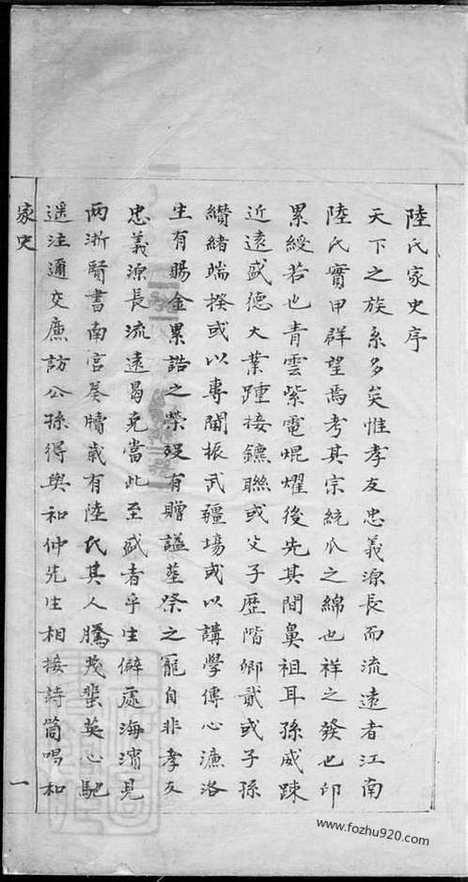 陸氏家史序
天下之族系多矣惟孝友忠義源長而流遠者江南
陸氏實甲群望焉考其宗統瓜之綿也祥之發也印
累綬若也青雲紫電焜耀後先其間鼻祖耳孫威疎
近遠盛德大業踵接鑣聯或父子歷階卿貳或子孫
纘緒端揆或以專閫振武疆場或以講學傳心濂洛
生有賜金累誥之榮歿有贈謚塋祭之寵自非孝友
忠義源長流遠曷克當此至盛者乎生僻處海濱見
兩浙賢書南宮奏牘歲有陸氏其人騰茂蜚英心馳
遥注邇交廉訪公孫得與和仲先生相接詩筒唱和
家史
一
www.fozhu920.com